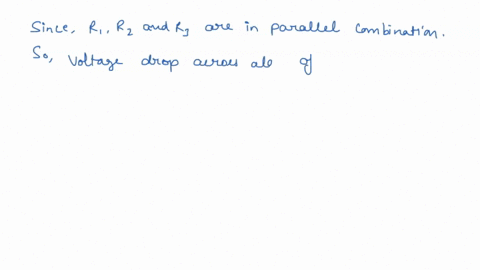 Since, R1, R2 and R3 are in parallel combination.
So, Voltage drop across all of